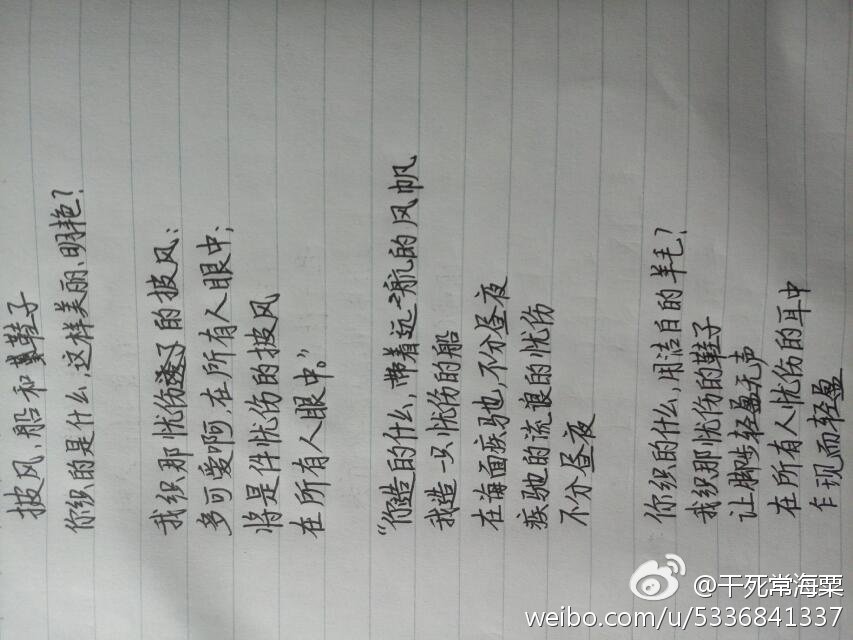 披风、船和鞋子
你织的是什么,这样美丽、明艳?
我织那忧伤的披风:
多可爱啊,在所有人眼中;
将是件忧伤的披风
在所有人眼中。”
“你造的什么,带着远航的风帆
我造一只忧伤的船
在海面疾驰也,不分昼夜
疾驰的流浪的忧伤
不分昼夜
你织的什么,用洁白的羊毛?
我织那忧伤的鞋子
让脚步轻盈无声
在所有人忧伤的耳中
乍现而轻盈
@干死常海粟
weibo.com/u/5336841337